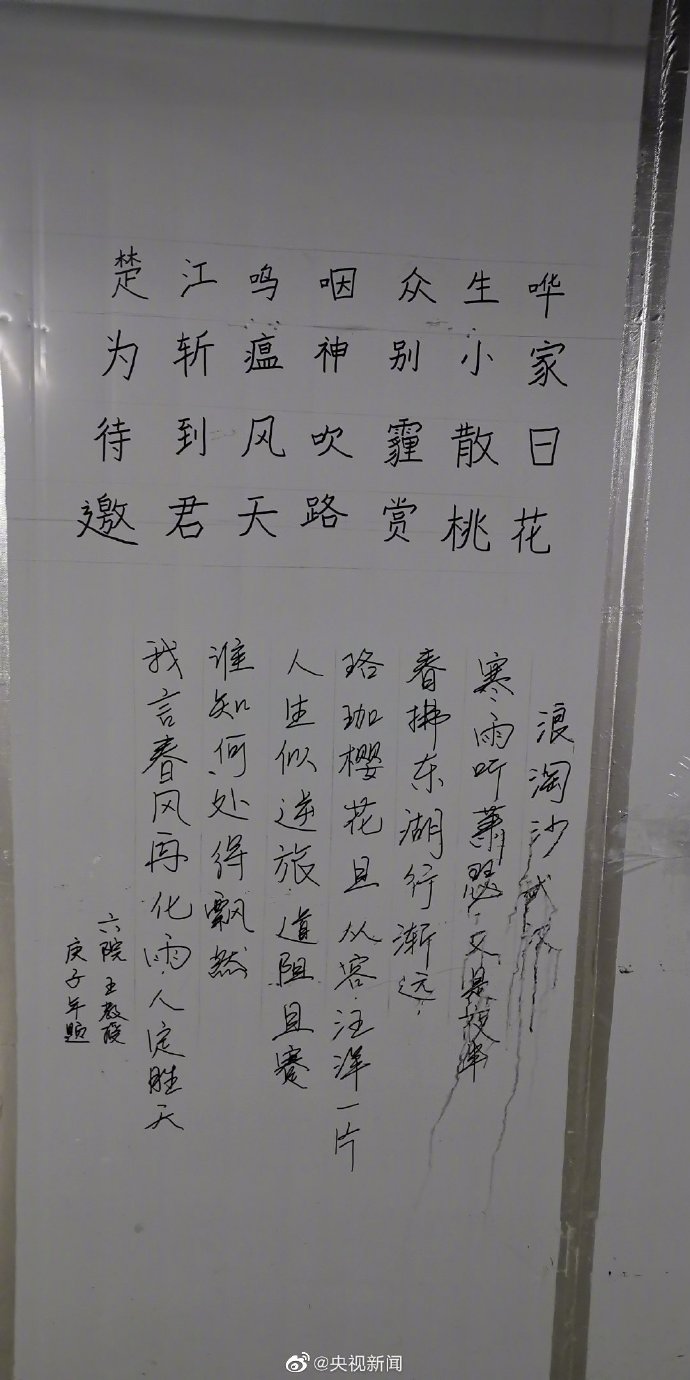 楚江鸣咽众生哗
为斩瘟神别小家
待到风吹霾散日
邀君天路赏桃花
浪淘沙 武汉
寒雨听萧瑟,又是夜半
春拂东湖行渐远.
珞珈樱花且从容.汪洋一片
人生似逆旅.道阻且蹇
谁知何处得飘然
我言春风再化雨.人定胜天
六院 王教授
庚子年题
@央视新闻